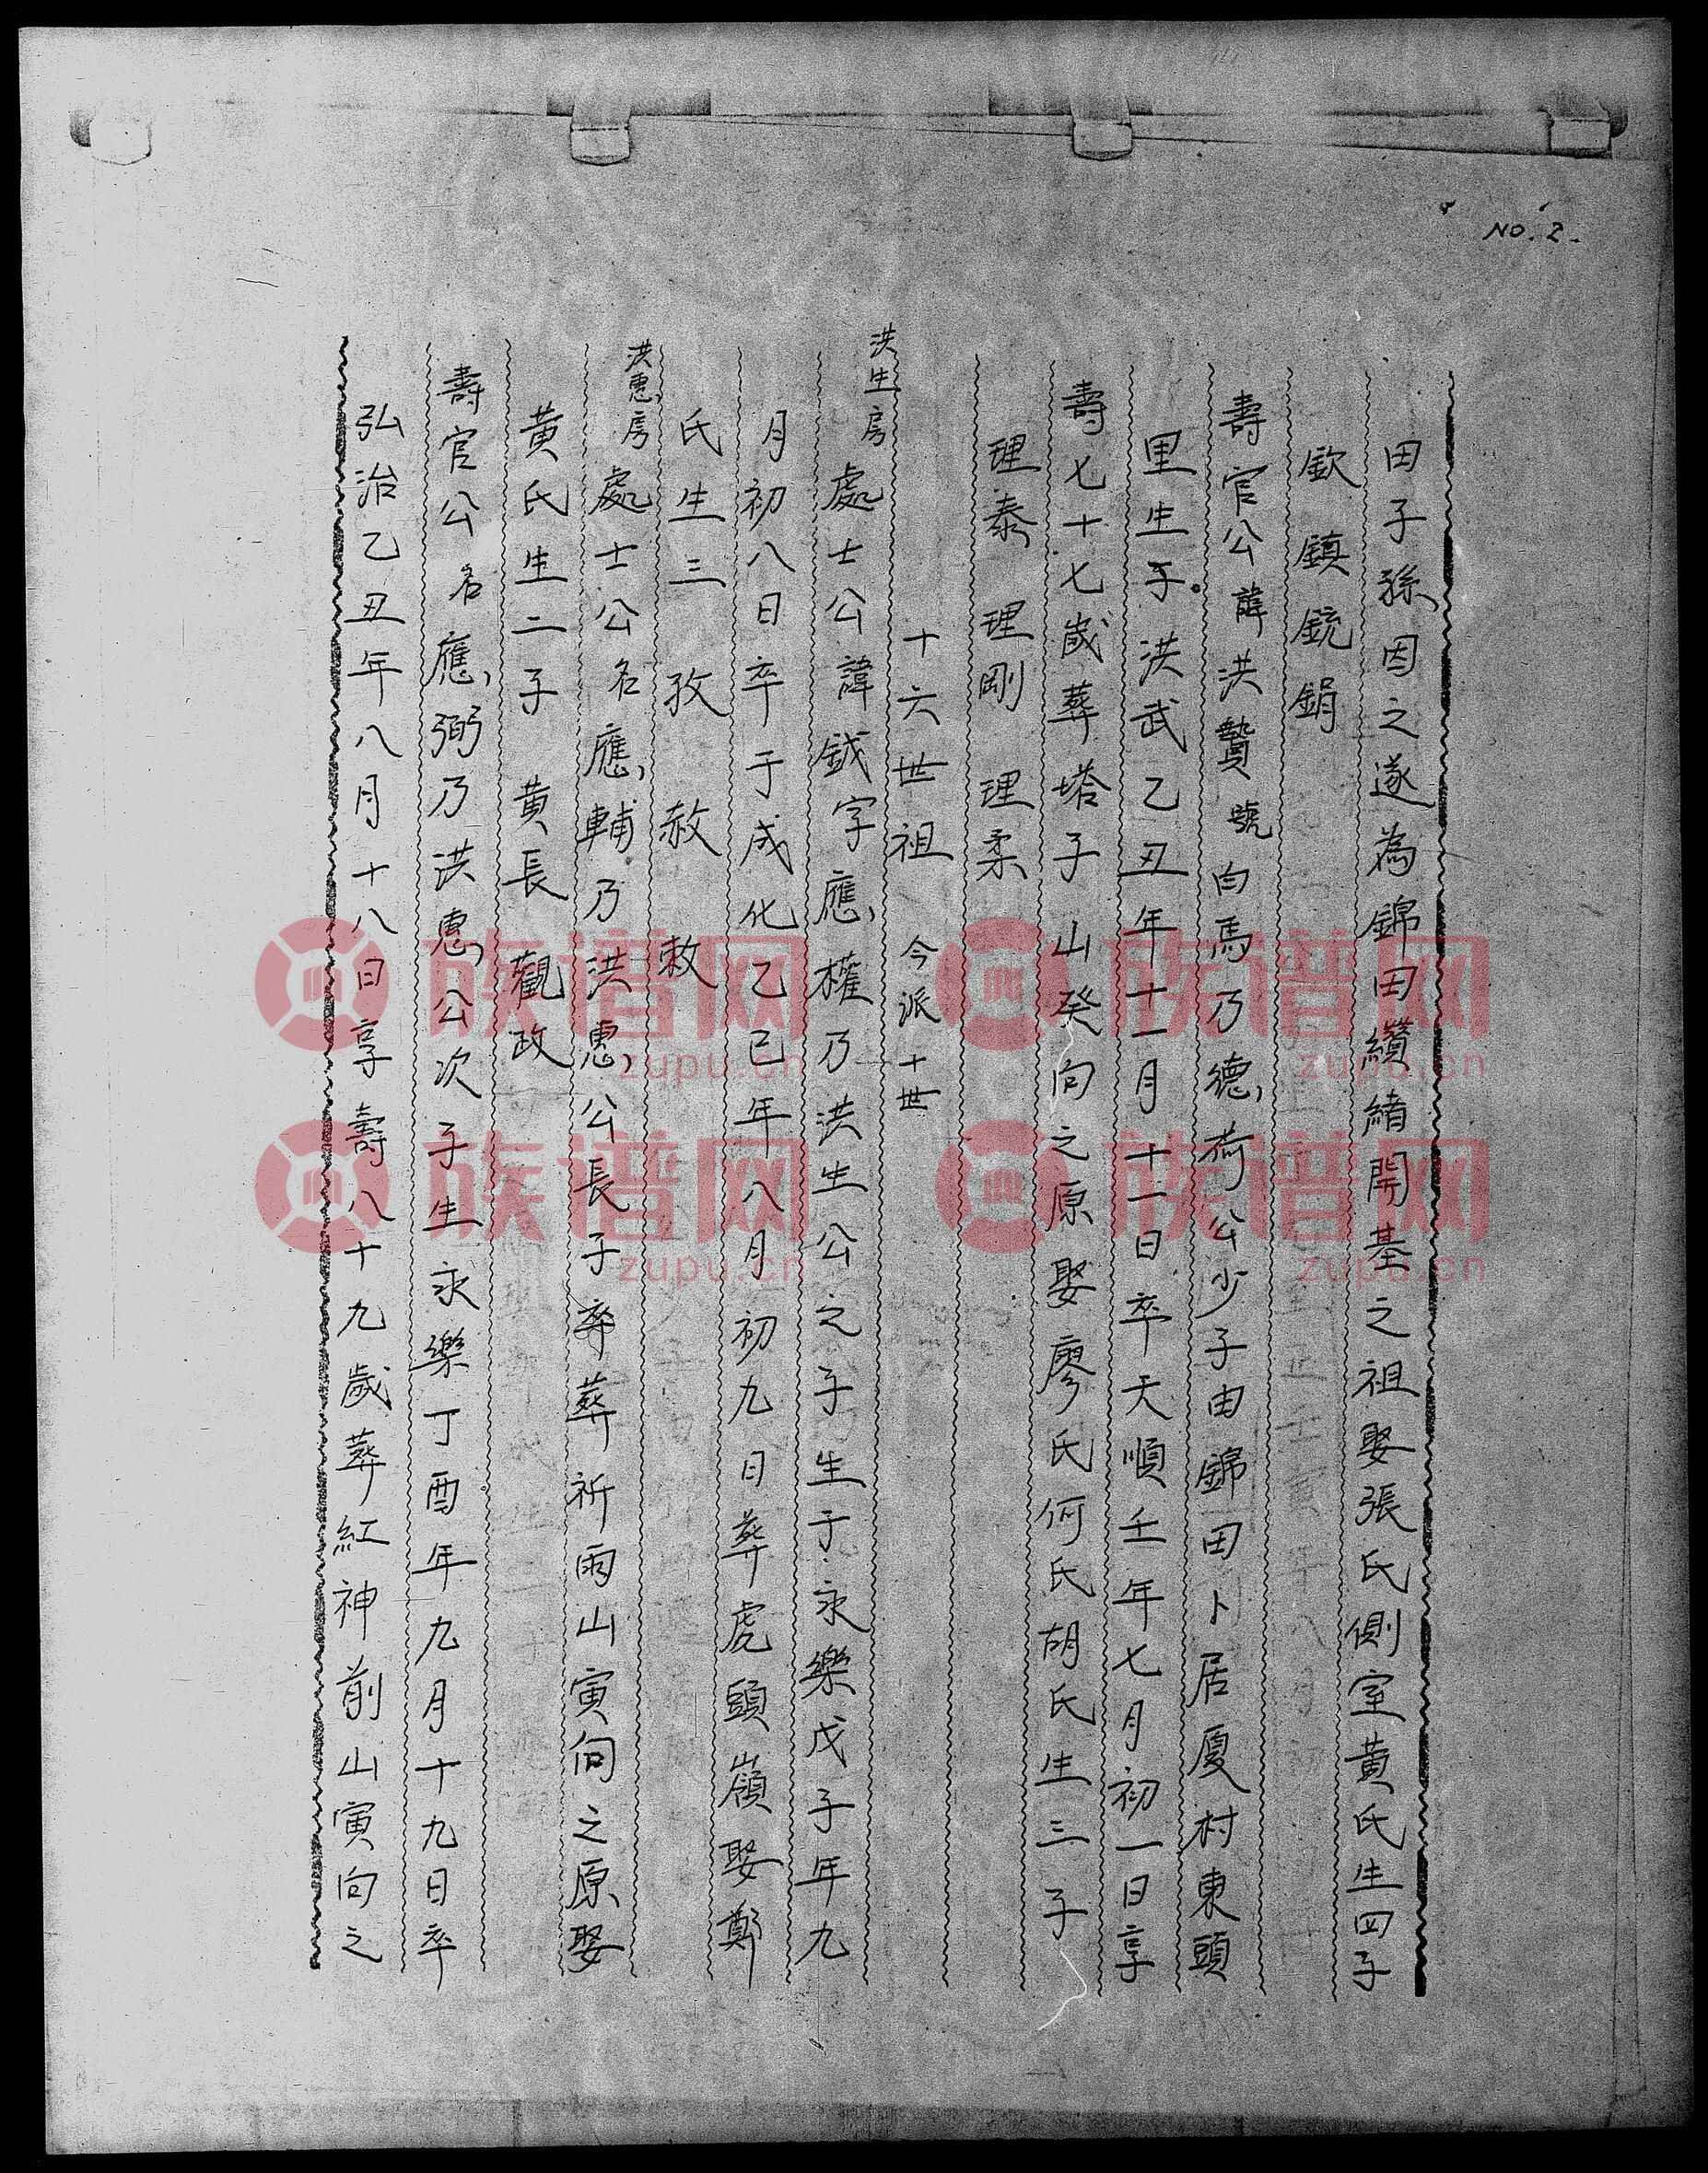 NO. 2.
田子孫因之遂為錦田纘緒開基之祖娶張氏側室黃氏生四子
欽 鎮 銃 鋗
壽官公諱洪贄號白馬乃德荷公少子由錦田卜居廈村東頭
里生于洪武乙丑年十一月十一日卒天順壬年七月初一日享
壽七十七歲葬塔子山癸向之原娶廖氏何氏胡氏生三子
理泰 理剛 理柔
十六世祖 今派十世
洪生房 處士公諱鉞字應權乃洪生公之子生于永樂戊子年九
月初八日卒于成化乙巳年八月初九日葬虎頭嶺娶鄭
氏生三 孜 赦 敕
洪惠房 處士公名應輔乃洪惠公長子卒葬祈雨山寅向之原娶
黃氏生二子 黃長 觀政
壽官公名應弼乃洪惠公次子生永樂丁酉年九月十九日卒
弘治乙丑年八月十八日享壽八十九歲葬紅神前山寅向之
族谱网
zupu.cn
族谱网
zupu.cn
族谱网
zupu.cn
族谱网
zupu.cn